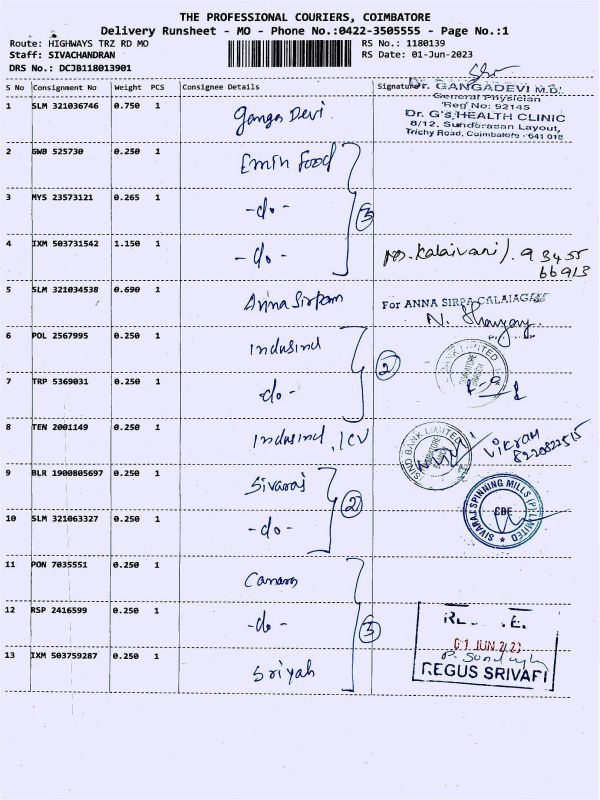 THE PROFESSIONAL COURIERS, COIMBATORE
Delivery Runsheet - MO - Phone No.:0422-3505555 - Page No.:1
Route: HIGHWAYS TRZ RD MO RS No.: 1180139
Staff: SIVACHANDRAN RS Date: 01-Jun-2023
DRS No.: DCJB118013901
S No Consignment No Weight PCS Consignee Details Signature
Dr. GANGADEVI M.D.
General Physician
Reg No: 92145
Dr. G's HEALTH CLINIC
8/12, Sundarasan Layout,
Trichy Road, Coimbatore - 641 018
1 SLM 321036746 0.750 1 Ganga Devi
2 GWB 525730 0.250 1 Emin Food
3 MYS 23573121 0.265 1 -do-
3
4 IXM 503731542 1.150 1 -do- Ms. Kalaivani). 93455
66913
5 SLM 321034538 0.690 1 Anna Sirpam For ANNA SIRPA GALAIAGAM
6 POL 2567995 0.250 1 Indusind
2
7 TRP 5369031 0.250 1 -do-
8 TEN 2001149 0.250 1 Indusind, ICV Vikram
8220822515
9 BLR 1900805697 0.250 1 Sivaraj
2
SIVARAJ SPINNING MILLS (P) LIMITED
CBE
10 SLM 321063327 0.250 1 -do-
11 PON 7035551 0.250 1 Canara
12 RSP 2416599 0.250 1 -do-
3
01 JUN 2023
13 IXM 503759287 0.250 1 Sriyah
REGUS SRIVARI